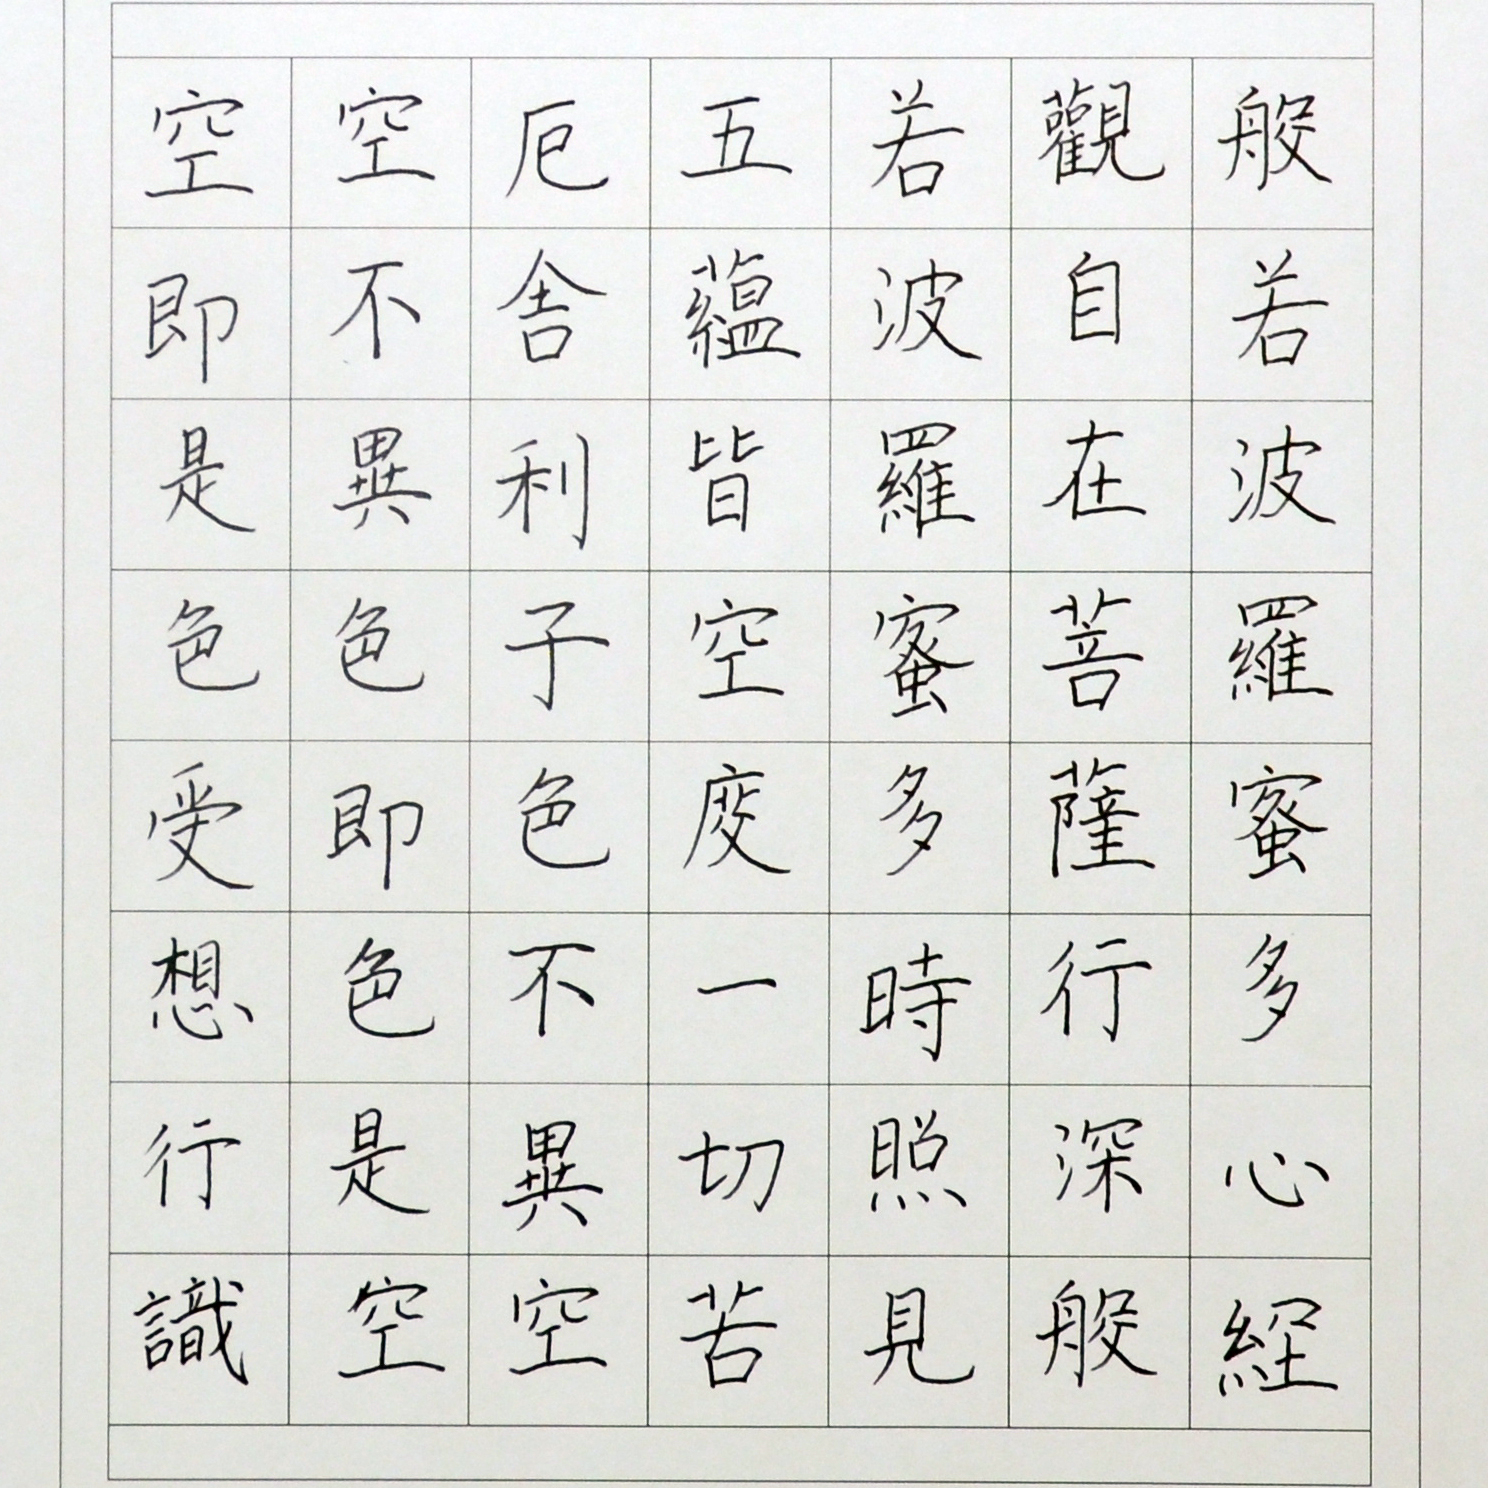 般若波羅蜜多心経
觀自在菩薩行深般
若波羅蜜多時照見
五蘊皆空度一切苦
厄舎利子色不異空
空不異色色即是空
空即是色受想行識